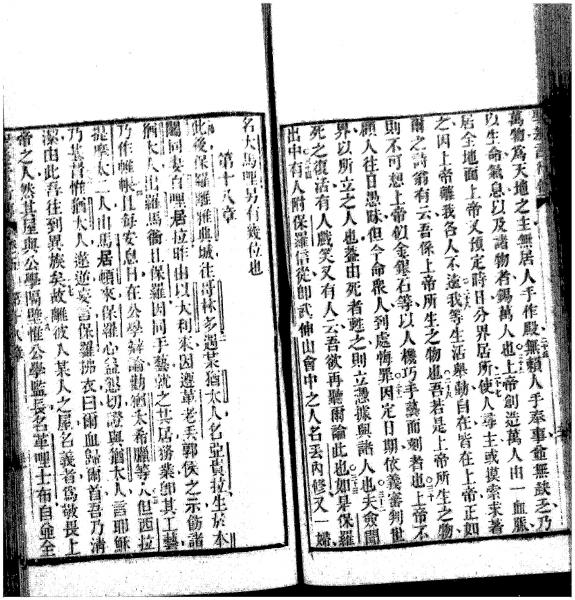 萬物爲天地之主無居人手作殿無賴人手奉事並無缺乏乃
以生命氣息以及諸物者錫萬人也上帝創造萬人由一血脈
居全地面上帝又預定時日分界居所使人尋主或摸索未著
之因上帝離我各人不遠我等生活舉動自在皆在上帝正如
爾之詩翁有云吾係上帝所生之物也吾若是上帝所生之物
則不可想上帝似金銀石等以人機巧手藝面刻者也上帝不
顧人往日愚昧但今命衆人到處悔罪因定日期依義審判世
界以所立之人也蓋由死者甦之則立憑據與諸人也夫衆聞
死之復活有人戲笑又有人云吾欲再聽爾論此也如是保羅
出中有人附保羅信從即武伸山會中之人名丟内修又一婦
名大馬哩另有幾位也
第十八章
此後保羅離雅典城往哥林多遇某猶太人名亞貴拉生於本
閭同妻百哩居拉昨由以大利來因遵革老丟郭侯之示飭諸
猶太人出羅馬衛且保羅因同手藝就之共居務業即其工藝
乃作帷帳且每安息日在公學辯論勸猶太希臘等人但西拉
提摩太二人由馬居頓來保羅心益懇切證與猶太人言耶穌
乃基督惟猶太人違逆妄言保羅拂衣曰爾血歸爾首吾乃清
潔由此吾往到異族矣故離彼入某人之屋名義者爲敬畏上
帝之人然其屋與公學隔壁惟公學監長名革哩士布自並全